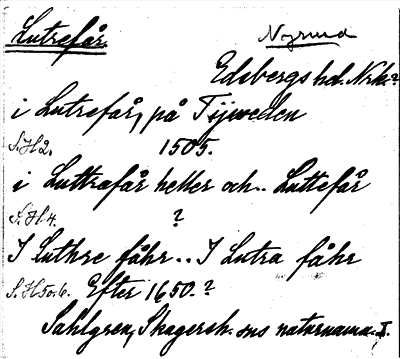 Lutrefår. Nysund
Edsbergs hd. Nrk.?
i Lutrefår, på Tijweden
S.H 2. 1505.
i Luttrafår heller och.. Luttefår
S.H 4. ?
I Luthre fåhr.. I Lutra fåhr
S.H 5o.6. Efter 1650.?
Sahlgren, Skagersh. sns naturnamn. I.